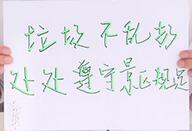 垃圾不乱扔
处处遵守景区规定